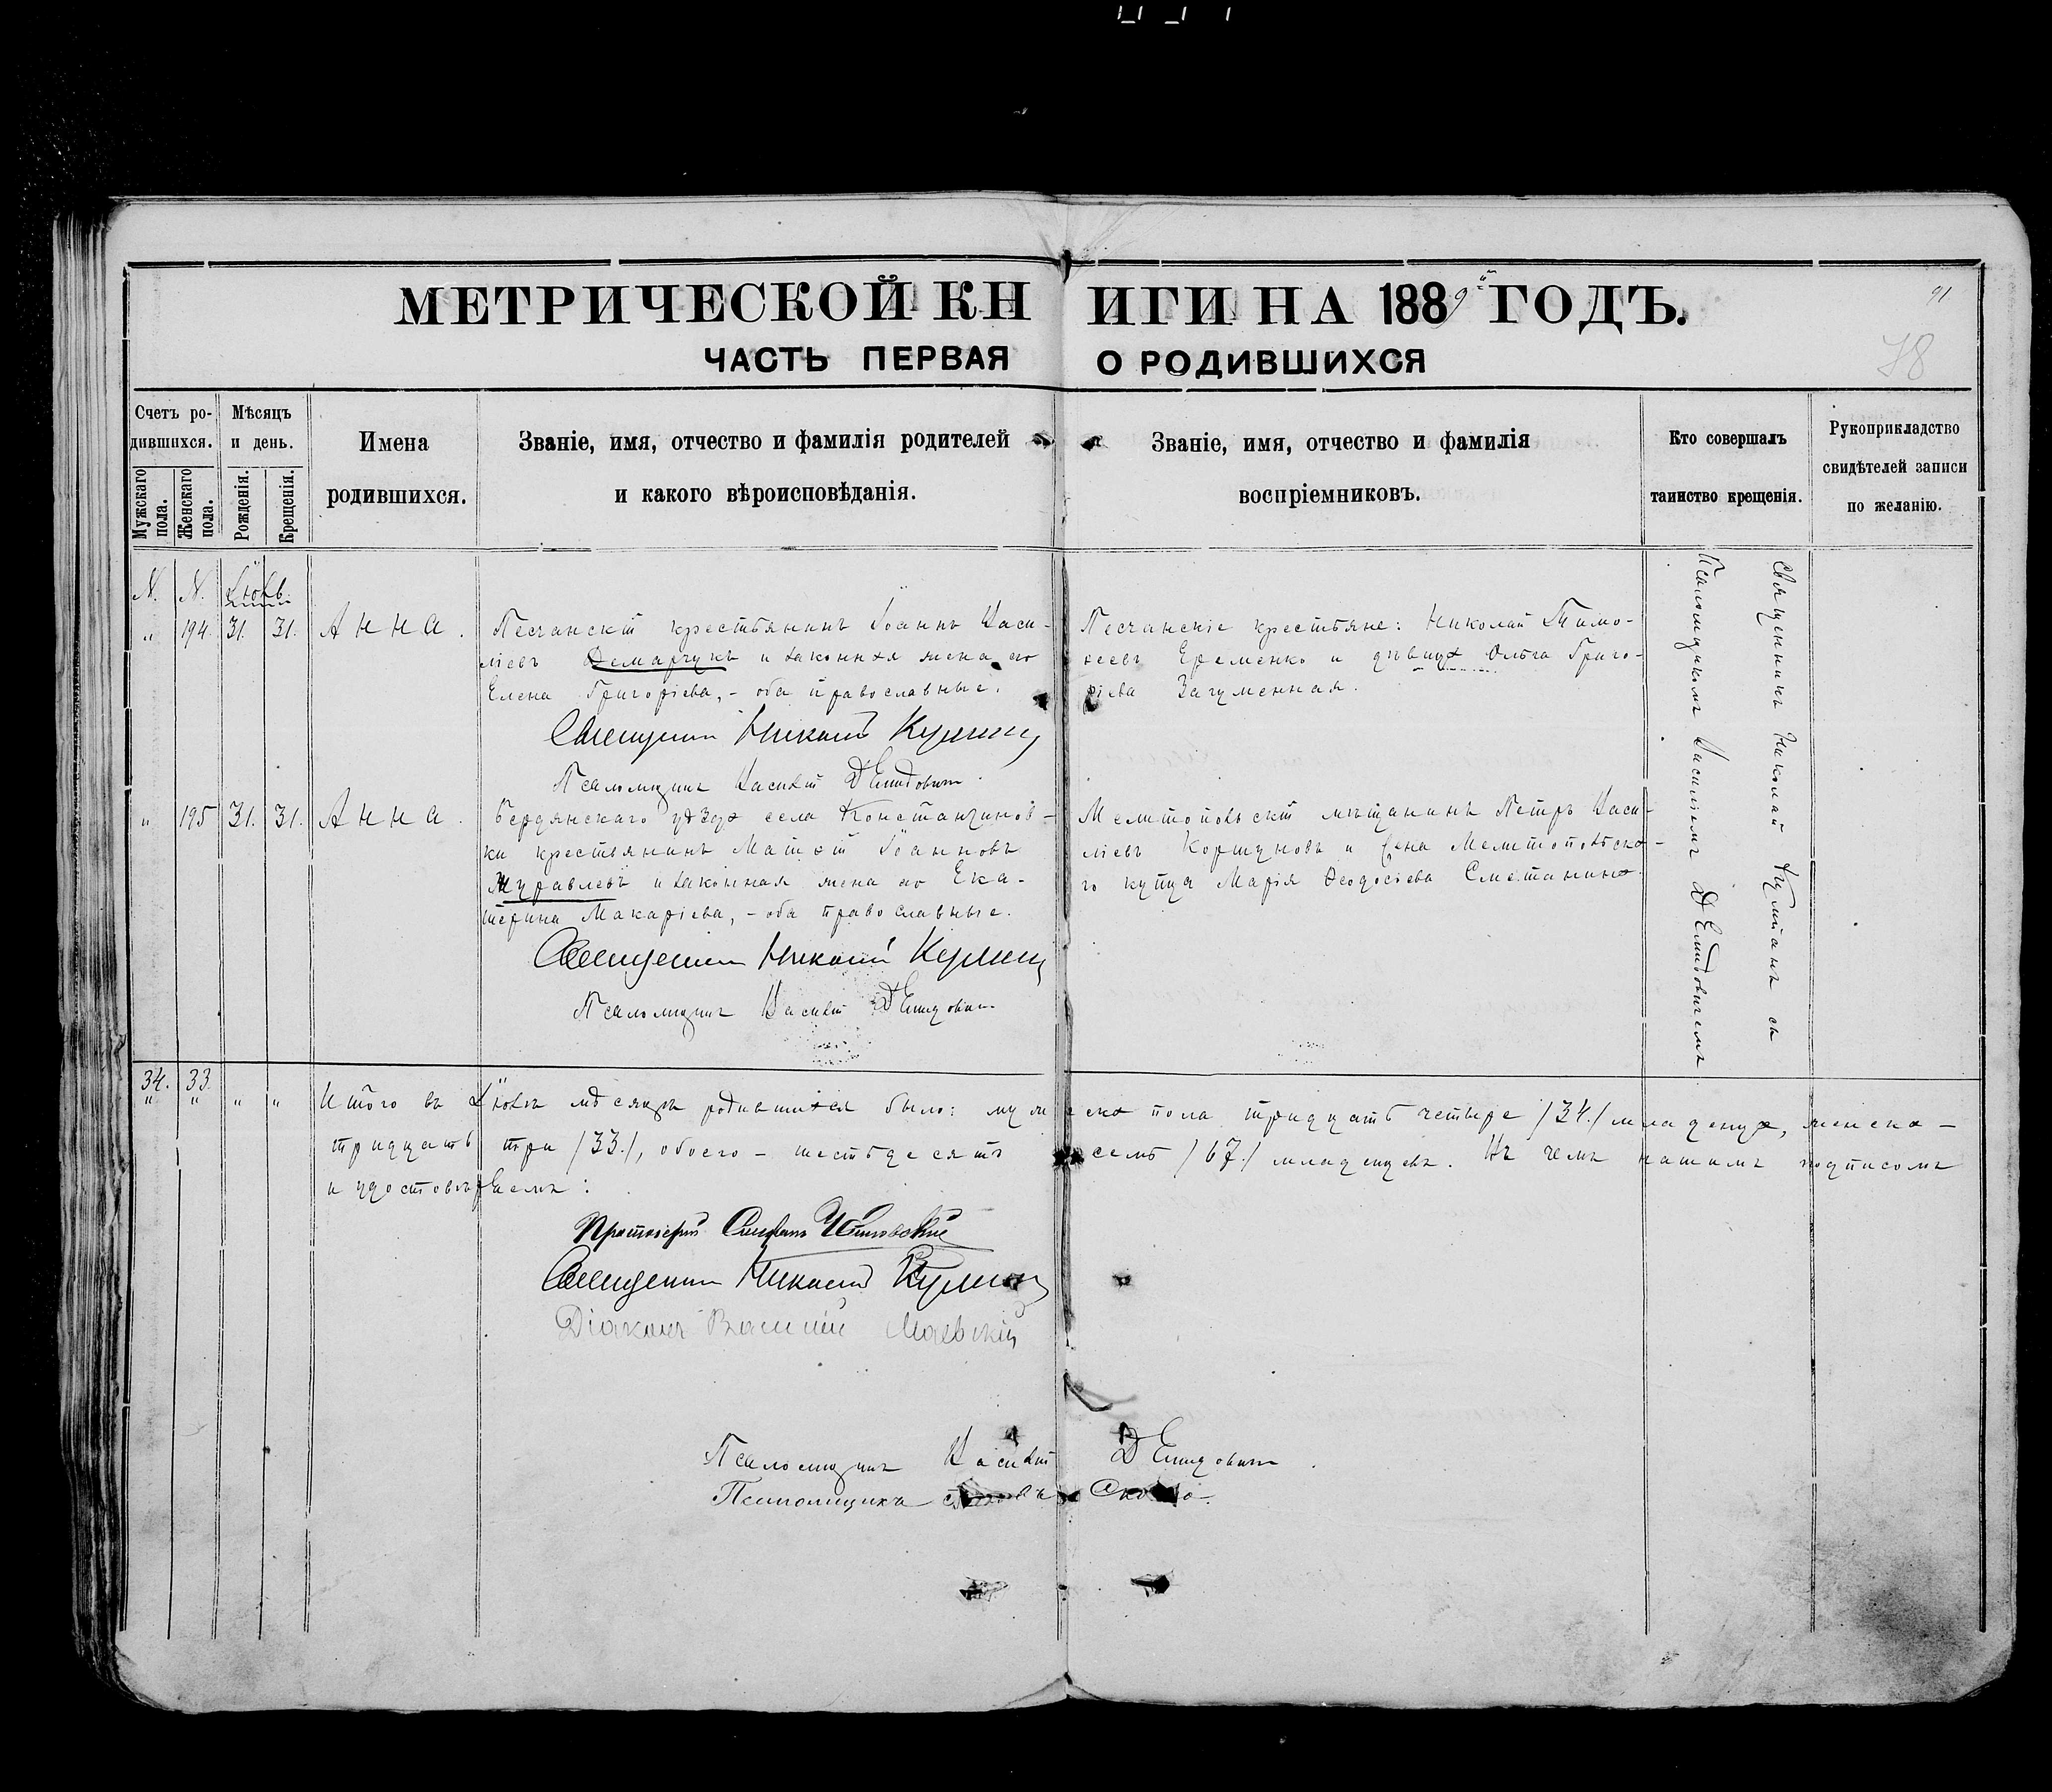 91
78
МЕТРИЧЕСКОЙ КНИГИ НА 1889й ГОДЪ.
ЧАСТЬ ПЕРВАЯ О РОДИВШИХСЯ
Счетъ родившихся.
Мужскаго пола.
Женскаго пола.
Мѣсяцъ и день.
Рожденія.
Крещенія.
Имена
родившихся.
Званіе, имя, отчество и фамилія родителей
и какого вѣроисповѣданія.
Званіе, имя, отчество и фамилія
воспріемниковъ.
Кто совершалъ
таинство крещенія.
Рукоприкладство
свидѣтелей записи
по желанію.
N. N. Іюль.
" 194. 31. 31. Анна.
Песчанскій крестьянинъ Іоаннъ Васи-
ліевъ Демарчукъ и законная жена его
Елена Григоріева, - оба православные.
Священникъ Николай
Псаломщикъ Василій Демидовичъ.
Песчанскіе крестьяне: Николай Тимо-
ѳеевъ Еременко и дѣвица Ольга Григо-
ріева Загуменная.
" 195 31. 31. Анна.
Бердянскаго уѣзда села Константинов-
ки крестьянинъ Матѳій Іоанновъ
Журавлевъ и законная жена его Ека-
терина Макаріева, - оба православные.
Священникъ Николай
Псаломщикъ Василій Демидовичъ
Мелитопольскій мѣщанинъ Петръ Васи-
ліевъ Коршуновъ и жена Мелитопольска-
го купца Марія Ѳеодосіева Сметанина.
Священникъ Николай съ
Псаломщикомъ Василіемъ Демидовичемъ
34. 33.
" " " " Итого въ Іюлѣ мѣсяцѣ родившихся было: мужеска пола тридцать четыре /34./ младенца, женска -
тридцать три /33./, обоего - шестьдесятъ семь /67./ младенцевъ. Въ чемъ нашимъ подписомъ
и удостовѣряемъ:
Протоіерей
Священникъ Николай
Діаконъ Василій Маевскій
Псаломщикъ Василій Демидовичъ.
Псаломщикъ